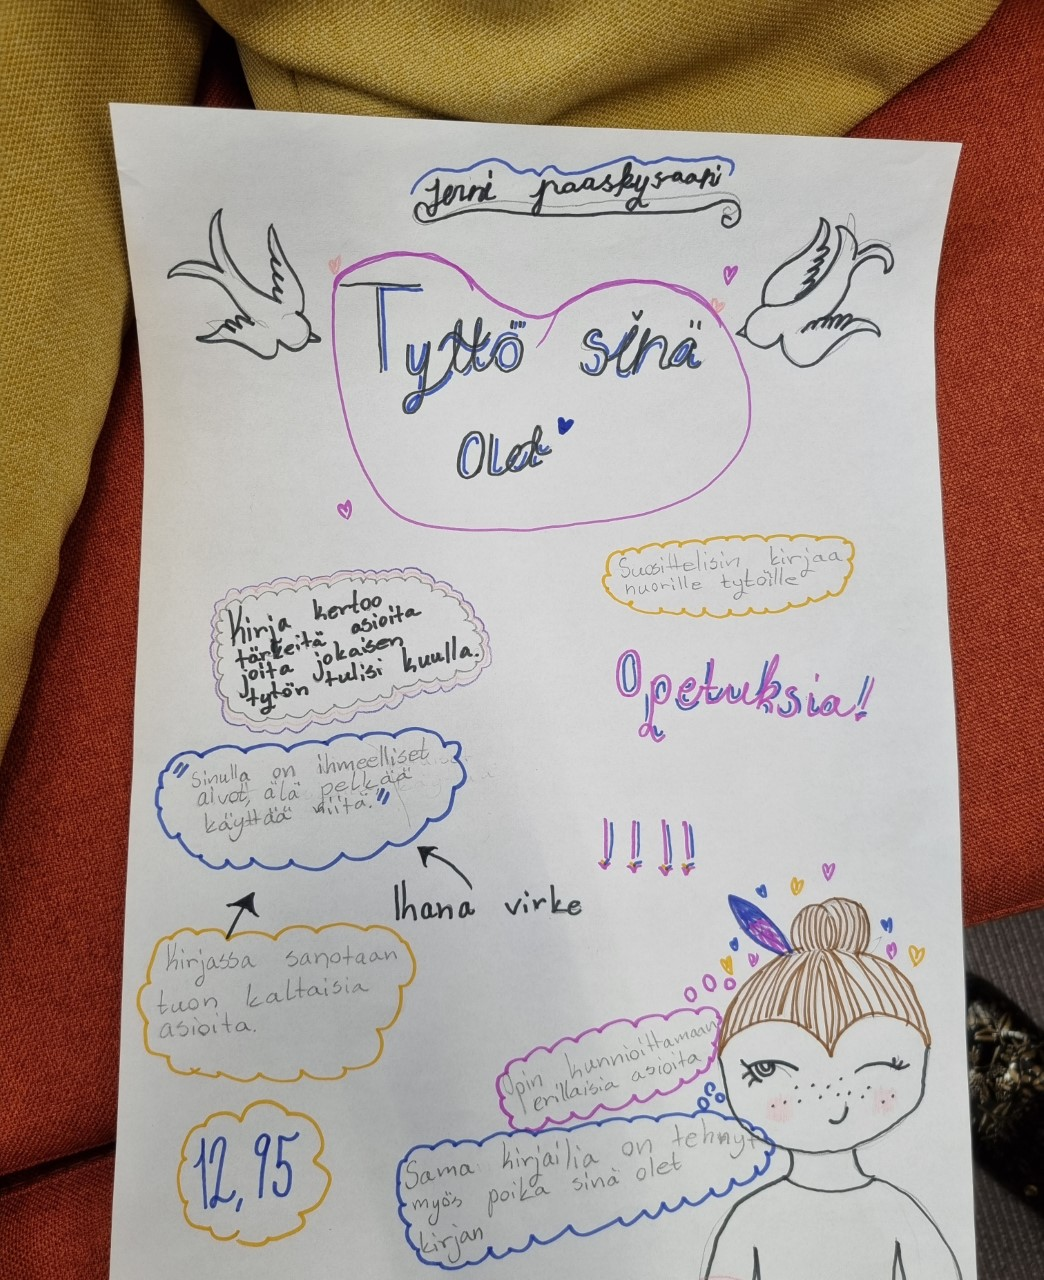 Jenni pääskysaari
Tyttö sinä
Olet
Suosittelisin kirjaa
nuorille tytöille
Kirja kertoo
tärkeitä asioita
joita jokaisen
tytön tulisi kuulla.
Opetuksia!
"Sinulla on ihmeelliset
aivot, älä pelkää
käyttää niitä."
!!!!
Ihana virke
Kirjassa sanotaan
tuon kaltaisia
asioita.
Opin kunnioittamaan
erillaisia asioita
12,95
Sama kirjailia on tehnyt
myös poika sinä olet
kirjan